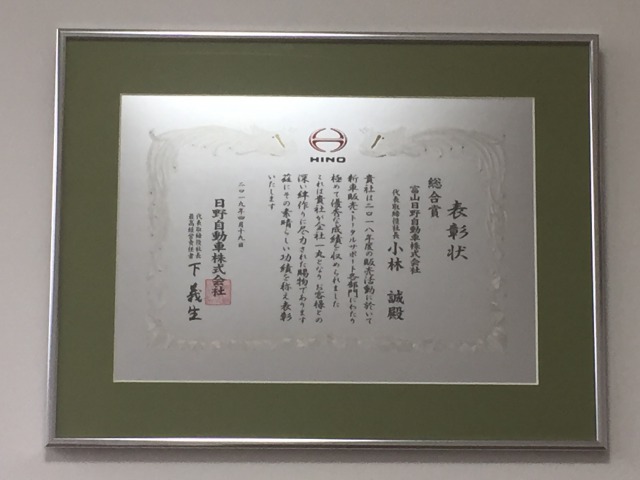 HINO
表彰状
総合賞
富山日野自動車株式会社
代表取締役社長 小林 誠殿
貴社は二〇一八年度の販売活動に於いて
新車販売・トータルサポート各部門にわたり
極めて優秀な成績を収められました
これは貴社が全社一丸となりお客様との
深い絆作りに尽力された賜物であります
茲にその素晴らしい功績を称え表彰
いたします
二〇一九年四月十九日
日野自動車株式会社
代表取締役社長
最高経営責任者 下 義生